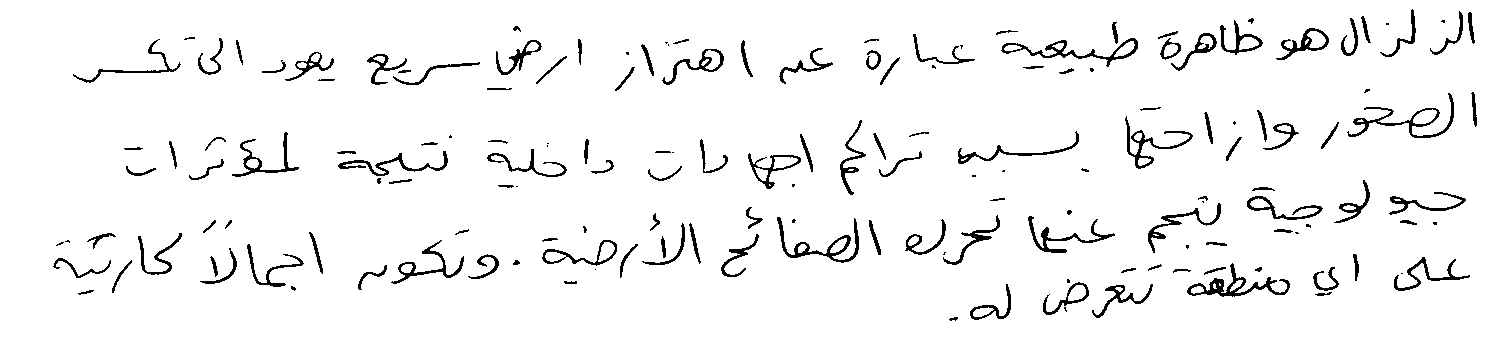 الزلزال هو ظاهرة طبيعية عبارة عن اهتزاز ارضي سريع يعود الى تكسر
الصخور وازاحتها بسبب تراكم اجهادات داخلية نتيجة لمؤثرات
جيولوجية ينجم عنها تحرك الصفائح الأرضية. وتكون اجمالاً كارثية
على اي منطقة تتعرض له.